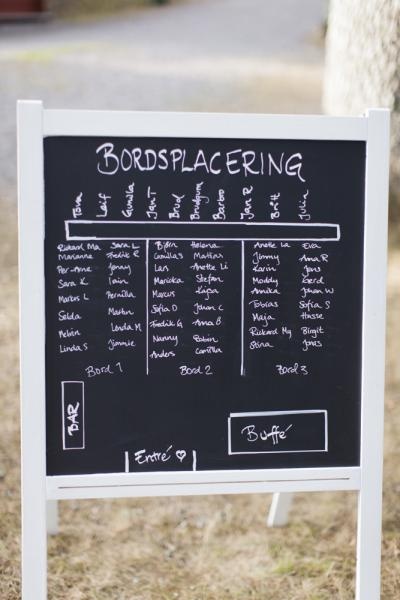 BORDSPLACERING
Tova Leif Gunilla Jan T Brud Brudgum Barbro Jan R Britt Julia
Rickard Ma Sara L Björn Helena Anette La Eva
Marianne Fredrik R Camillas Mattias Jimmy Ana R
Per-Arne Jonny Lars Anette Li Karin Jens
Sara K Iain Marieka Stefan Moddy Gerd
Marcus L Pernilla Marcus Kajsa Annika Johan W
Selda Martin Sofia D Johan C Tobias Sofia S
Melvin Linda M Fredrik G Ana B Maja Hasse
Linda S Jimmie Nanny Robin Rickard Mg Birgit
Anders Camilla Stina Jonas
Bord 1 Bord 2 Bord 3
BAR
Buffé
Entré ♡